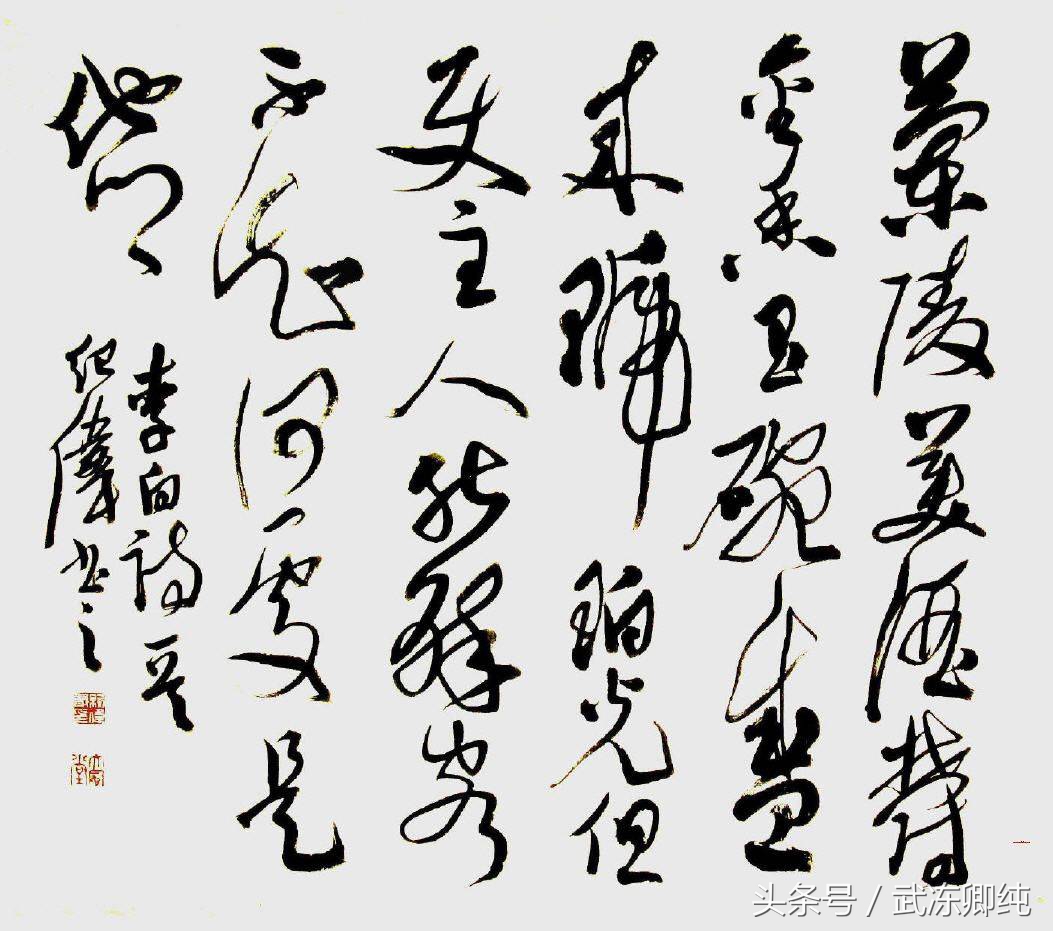 蘭陵美酒鬱
金香玉碗盛
来琥珀光但
使主人能醉客
不知何處是
他鄉
李白詩一首
紀偉书之
头条号 / 武冻卿纯